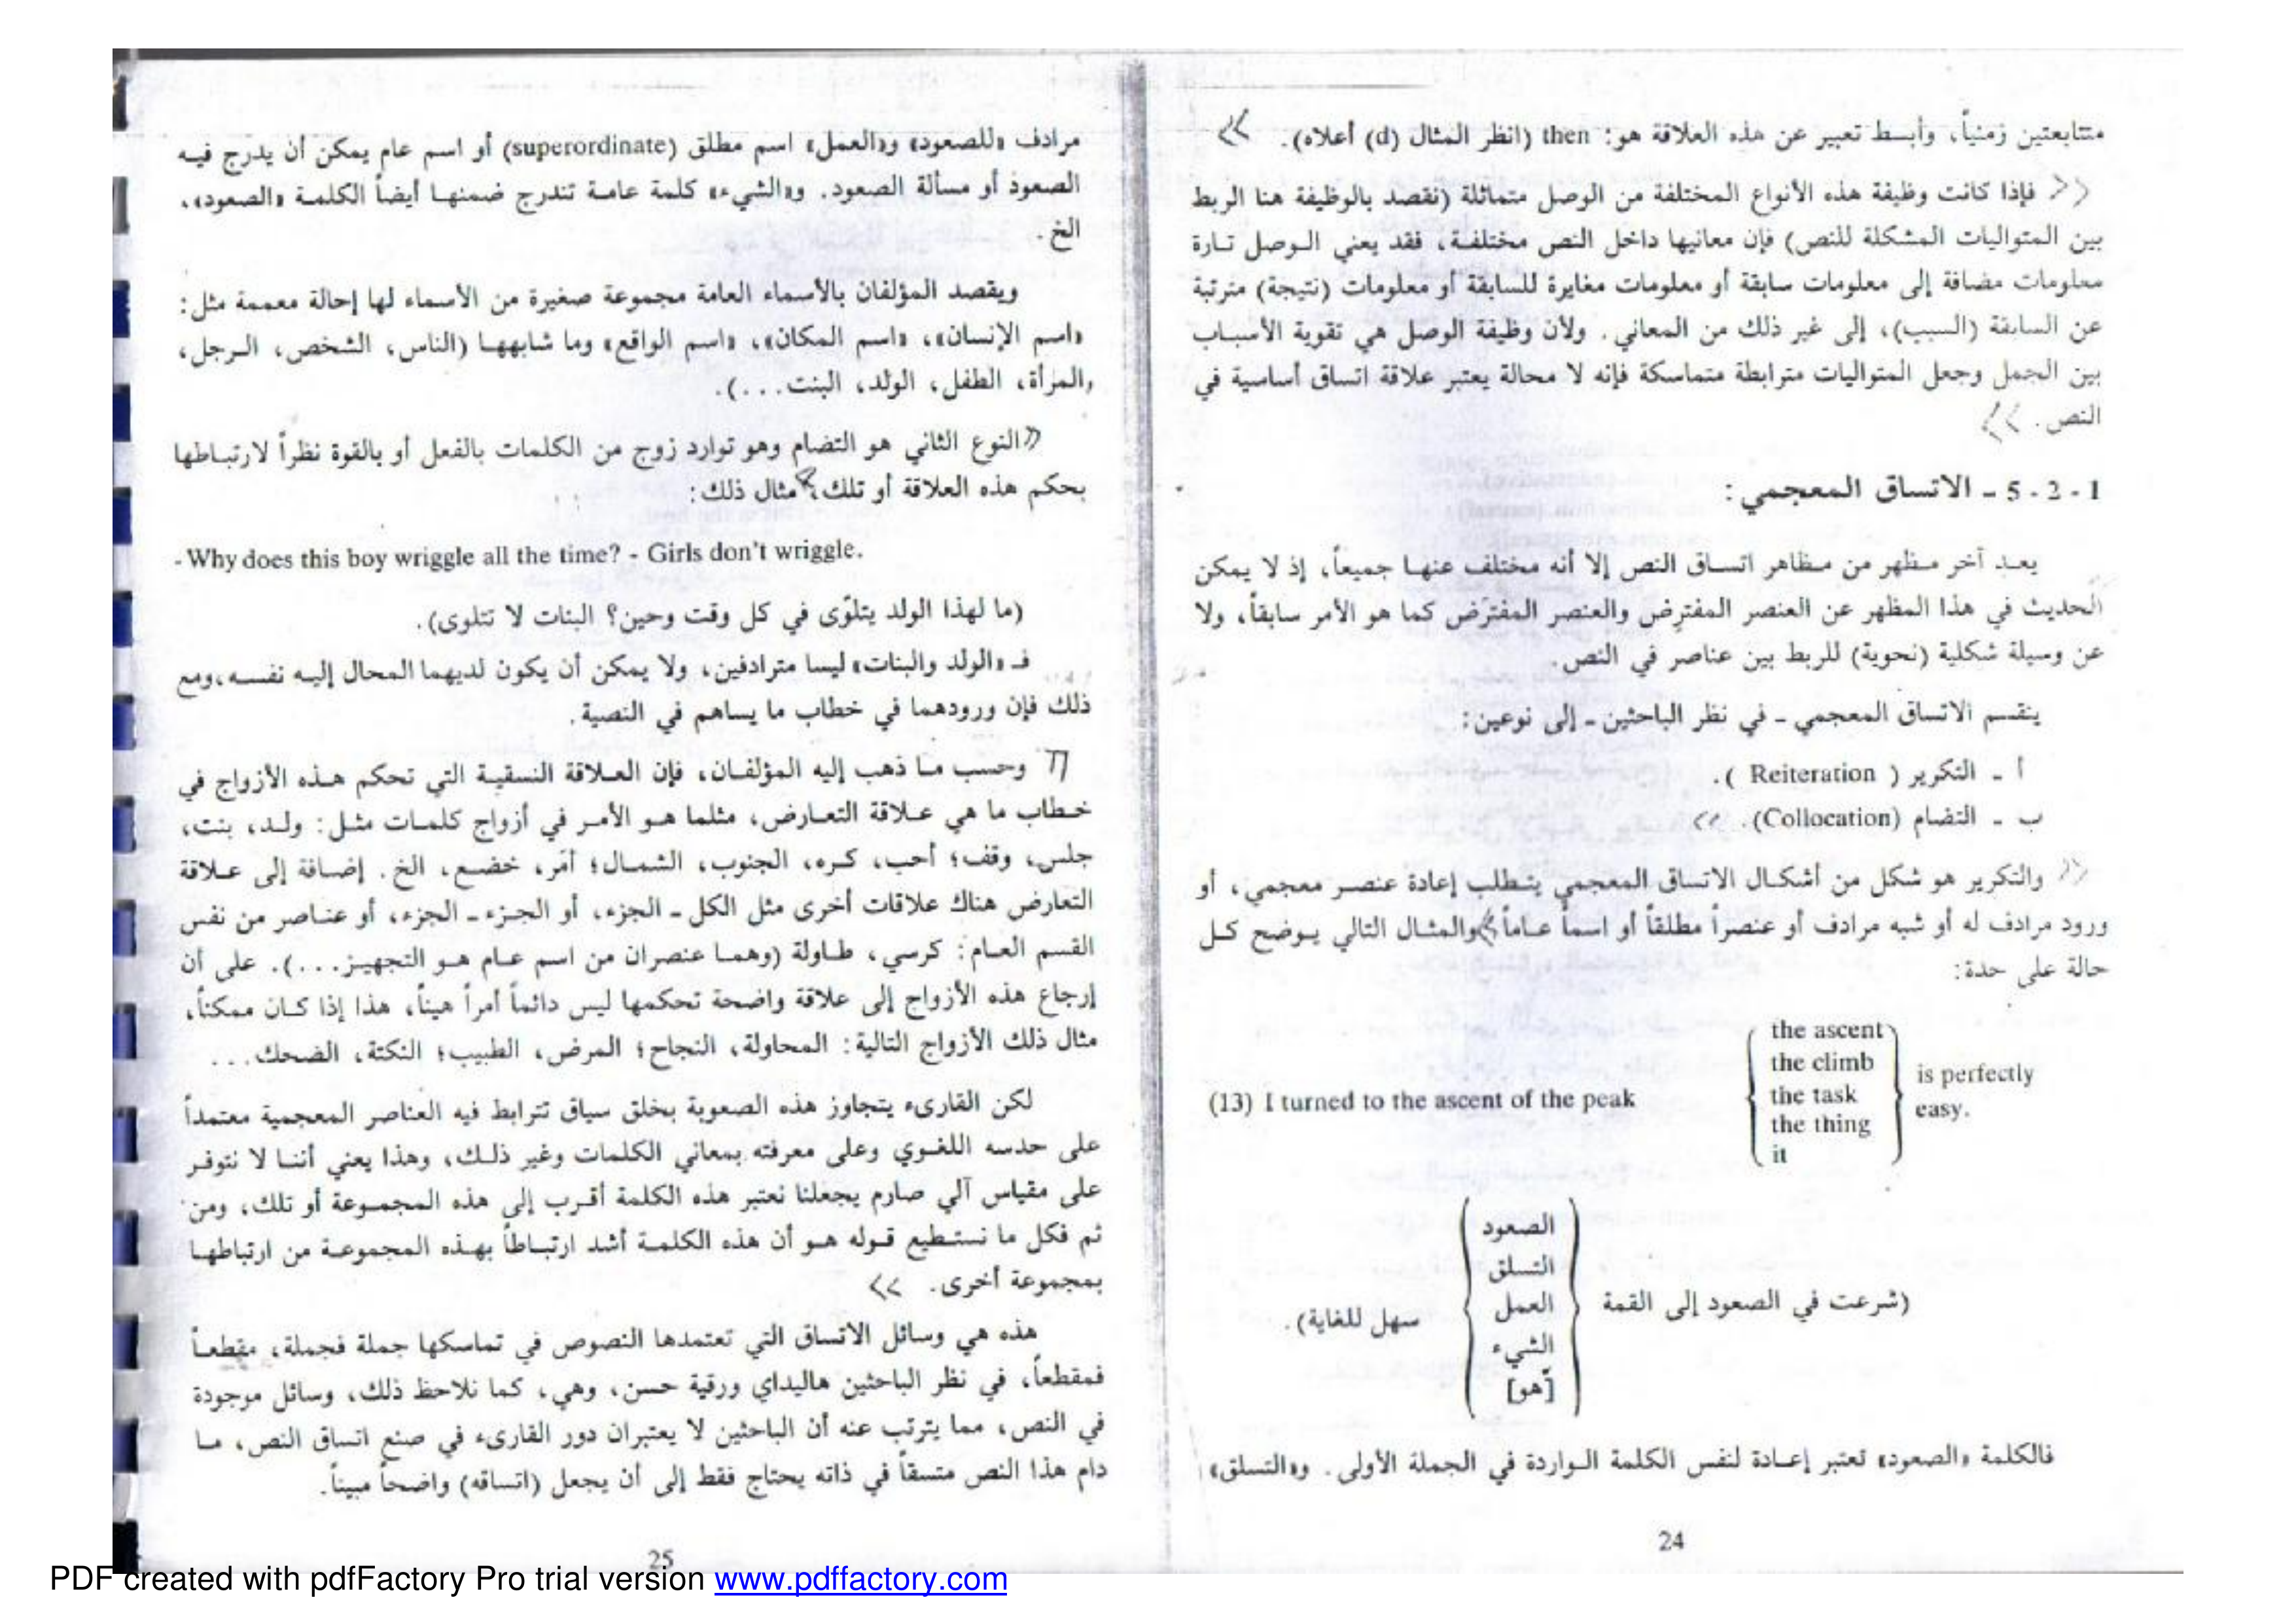 متتابعتين زمنياً، وأبسط تعبير عن هذه العلاقة هو: then (انظر المثال (d) أعلاه).
فإذا كانت وظيفة هذه الأنواع المختلفة من الوصل متماثلة (نقصد بالوظيفة هنا الربط
بين المتواليات المشكلة للنص) فإن معانيها داخل النص مختلفة، فقد يعني الوصل تارة
معلومات مضافة إلى معلومات سابقة أو معلومات مغايرة للسابقة أو معلومات (نتيجة) مترتبة
عن السابقة (السبب)، إلى غير ذلك من المعاني. ولأن وظيفة الوصل هي تقوية الأسباب
بين الجمل وجعل المتواليات مترابطة متماسكة فإنه لا محالة يعتبر علاقة اتساق أساسية في
النص.
1 - 2 - 5 - الاتساق المعجمي:
يعد آخر مظهر من مظاهر اتساق النص إلا أنه مختلف عنها جميعاً، إذ لا يمكن
الحديث في هذا المظهر عن العنصر المفترِض والعنصر المفترَض كما هو الأمر سابقاً، ولا
عن وسيلة شكلية (نحوية) للربط بين عناصر في النص.
ينقسم الاتساق المعجمي - في نظر الباحثين - إلى نوعين:
أ - التكرير ( Reiteration ).
ب - التضام (Collocation).
والتكرير هو شكل من أشكال الاتساق المعجمي يتطلب إعادة عنصر معجمي، أو
ورود مرادف له أو شبه مرادف أو عنصراً مطلقاً أو اسماً عاماً والمثال التالي يوضح كل
حالة على حدة:
(13) I turned to the ascent of the peak
the ascent
the climb
the task
the thing
it
is perfectly
easy.
(شرعت في الصعود إلى القمة
الصعود
التسلق
العمل
الشيء
[هو]
سهل للغاية).
فالكلمة «الصعود» تعتبر إعادة لنفس الكلمة الواردة في الجملة الأولى. و«التسلق»
24
مرادف «للصعود» و«العمل» اسم مطلق (superordinate) أو اسم عام يمكن أن يدرج فيه
الصعود أو مسألة الصعود. و«الشيء» كلمة عامة تندرج ضمنها أيضاً الكلمة «الصعود»،
الخ.
ويقصد المؤلفان بالأسماء العامة مجموعة صغيرة من الأسماء لها إحالة معممة مثل:
«اسم الإنسان»، «اسم المكان»، «اسم الواقع» وما شابهها (الناس، الشخص، الرجل،
والمرأة، الطفل، الولد، البنت...).
النوع الثاني هو التضام وهو توارد زوج من الكلمات بالفعل أو بالقوة نظراً لارتباطها
بحكم هذه العلاقة أو تلك، مثال ذلك:
- Why does this boy wriggle all the time? - Girls don't wriggle.
(ما لهذا الولد يتلوّى في كل وقت وحين؟ البنات لا تتلوى).
فـ «الولد والبنات» ليسا مترادفين، ولا يمكن أن يكون لديهما المحال إليه نفسه، ومع
ذلك فإن ورودهما في خطاب ما يساهم في النصية.
وحسب ما ذهب إليه المؤلفان، فإن العلاقة النسقية التي تحكم هذه الأزواج في
خطاب ما هي علاقة التعارض، مثلما هو الأمر في أزواج كلمات مثل: ولد، بنت،
جلس، وقف؛ أحب، كره، الجنوب، الشمال؛ أمَر، خضع، الخ. إضافة إلى علاقة
التعارض هناك علاقات أخرى مثل الكل - الجزء، أو الجزء - الجزء، أو عناصر من نفس
القسم العام: كرسي، طاولة (وهما عنصران من اسم عام هو التجهيز...). على أن
إرجاع هذه الأزواج إلى علاقة واضحة تحكمها ليس دائماً أمراً هيناً، هذا إذا كان ممكناً،
مثال ذلك الأزواج التالية: المحاولة، النجاح؛ المرض، الطبيب؛ النكتة، الضحك...
لكن القارىء يتجاوز هذه الصعوبة بخلق سياق تترابط فيه العناصر المعجمية معتمداً
على حدسه اللغوي وعلى معرفته بمعاني الكلمات وغير ذلك، وهذا يعني أننا لا نتوفر
على مقياس آلي صارم يجعلنا نعتبر هذه الكلمة أقرب إلى هذه المجموعة أو تلك، ومن
ثم فكل ما نستطيع قوله هو أن هذه الكلمة أشد ارتباطاً بهذه المجموعة من ارتباطها
بمجموعة أخرى.
هذه هي وسائل الاتساق التي تعتمدها النصوص في تماسكها جملة فجملة، مقطعاً
فمقطعاً، في نظر الباحثين هاليداي ورقية حسن، وهي، كما نلاحظ ذلك، وسائل موجودة
في النص، مما يترتب عنه أن الباحثين لا يعتبران دور القارىء في صنع اتساق النص، ما
دام هذا النص متسقاً في ذاته يحتاج فقط إلى أن يجعل (اتساقه) واضحاً مبيناً.
25
PDF created with pdfFactory Pro trial version www.pdffactory.com